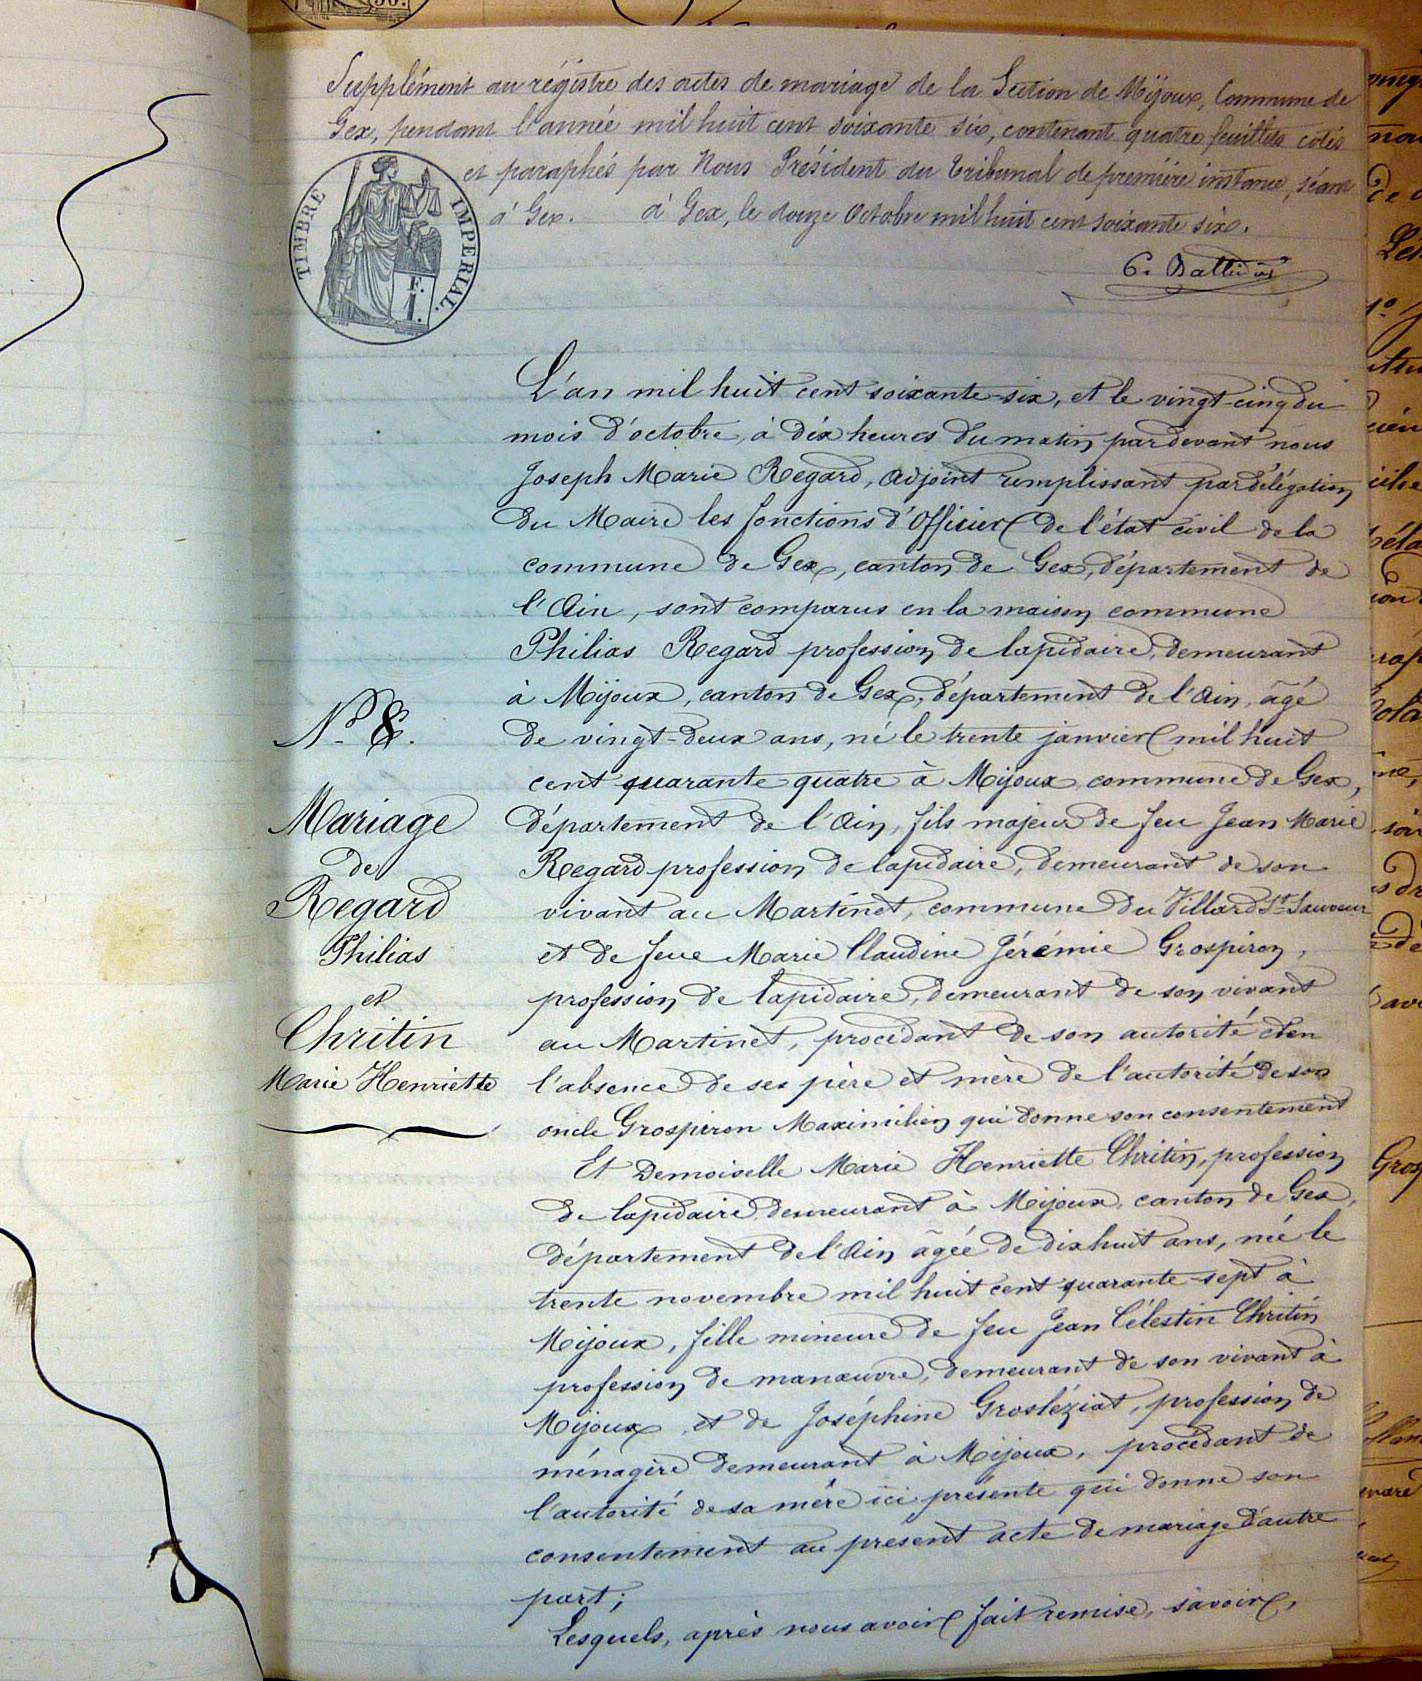 Supplément au régistre des actes de mariage de la Section de Mijoux, Commune de
Gex, pendant l'année mil huit cent soixante six, contenant quatre feuillets cotés
et paraphés par Nous Président du tribunal de première instance, séant
à Gex. à Gex, le douze Octobre mil huit cent soixante six.
TIMBRE IMPERIAL.
F.
1.
L'an mil huit cent soixante-six, et le vingt-cinq du
mois d'octobre, à dix heures du matin pardevant nous
Joseph Marie Regard, adjoint remplissant par délégation
du Maire les fonctions d'Officier de l'état civil de la
commune de Gex, canton de Gex, département de
l'Ain, sont comparus en la maison commune
Philias Regard profession de lapidaire, demeurant
à Mijoux, canton de Gex, département de l'Ain, âgé
de vingt-deux ans, né le trente janvier mil huit
cent quarante quatre à Mijoux commune de Gex,
département de l'Ain, fils majeur de feu Jean Marie
Regard profession de lapidaire, demeurant de son
vivant au Martinet, commune du Villard St Sauveur
et de feue Marie Claudine Jérémie Grospiron,
profession de lapidaire, demeurant de son vivant
au Martinet, procédant de son autorité et en
l'absence de ses père et mère de l'autorité de son
oncle Grospiron Maximilien qui donne son consentement
Et Demoiselle Marie Henriette Chritin, profession
de lapidaire demeurant à Mijoux, canton de Gex,
département de l'Ain âgée de dix huit ans, née le
trente novembre mil huit cent quarante-sept à
Mijoux, fille mineure de feu Jean Célestin Chritin
profession de manœuvre, demeurant de son vivant à
Mijoux, et de Joséphine Grosléziat, profession de
ménagère demeurant à Mijoux, procédant de
l'autorité de sa mère ici présente qui donne son
consentement au présent acte de mariage d'autre
part;
Lesquels, après nous avoir fait remise, savoir,
N° 8.
Mariage
de
Regard
Philias
et
Chritin
Marie Henriette